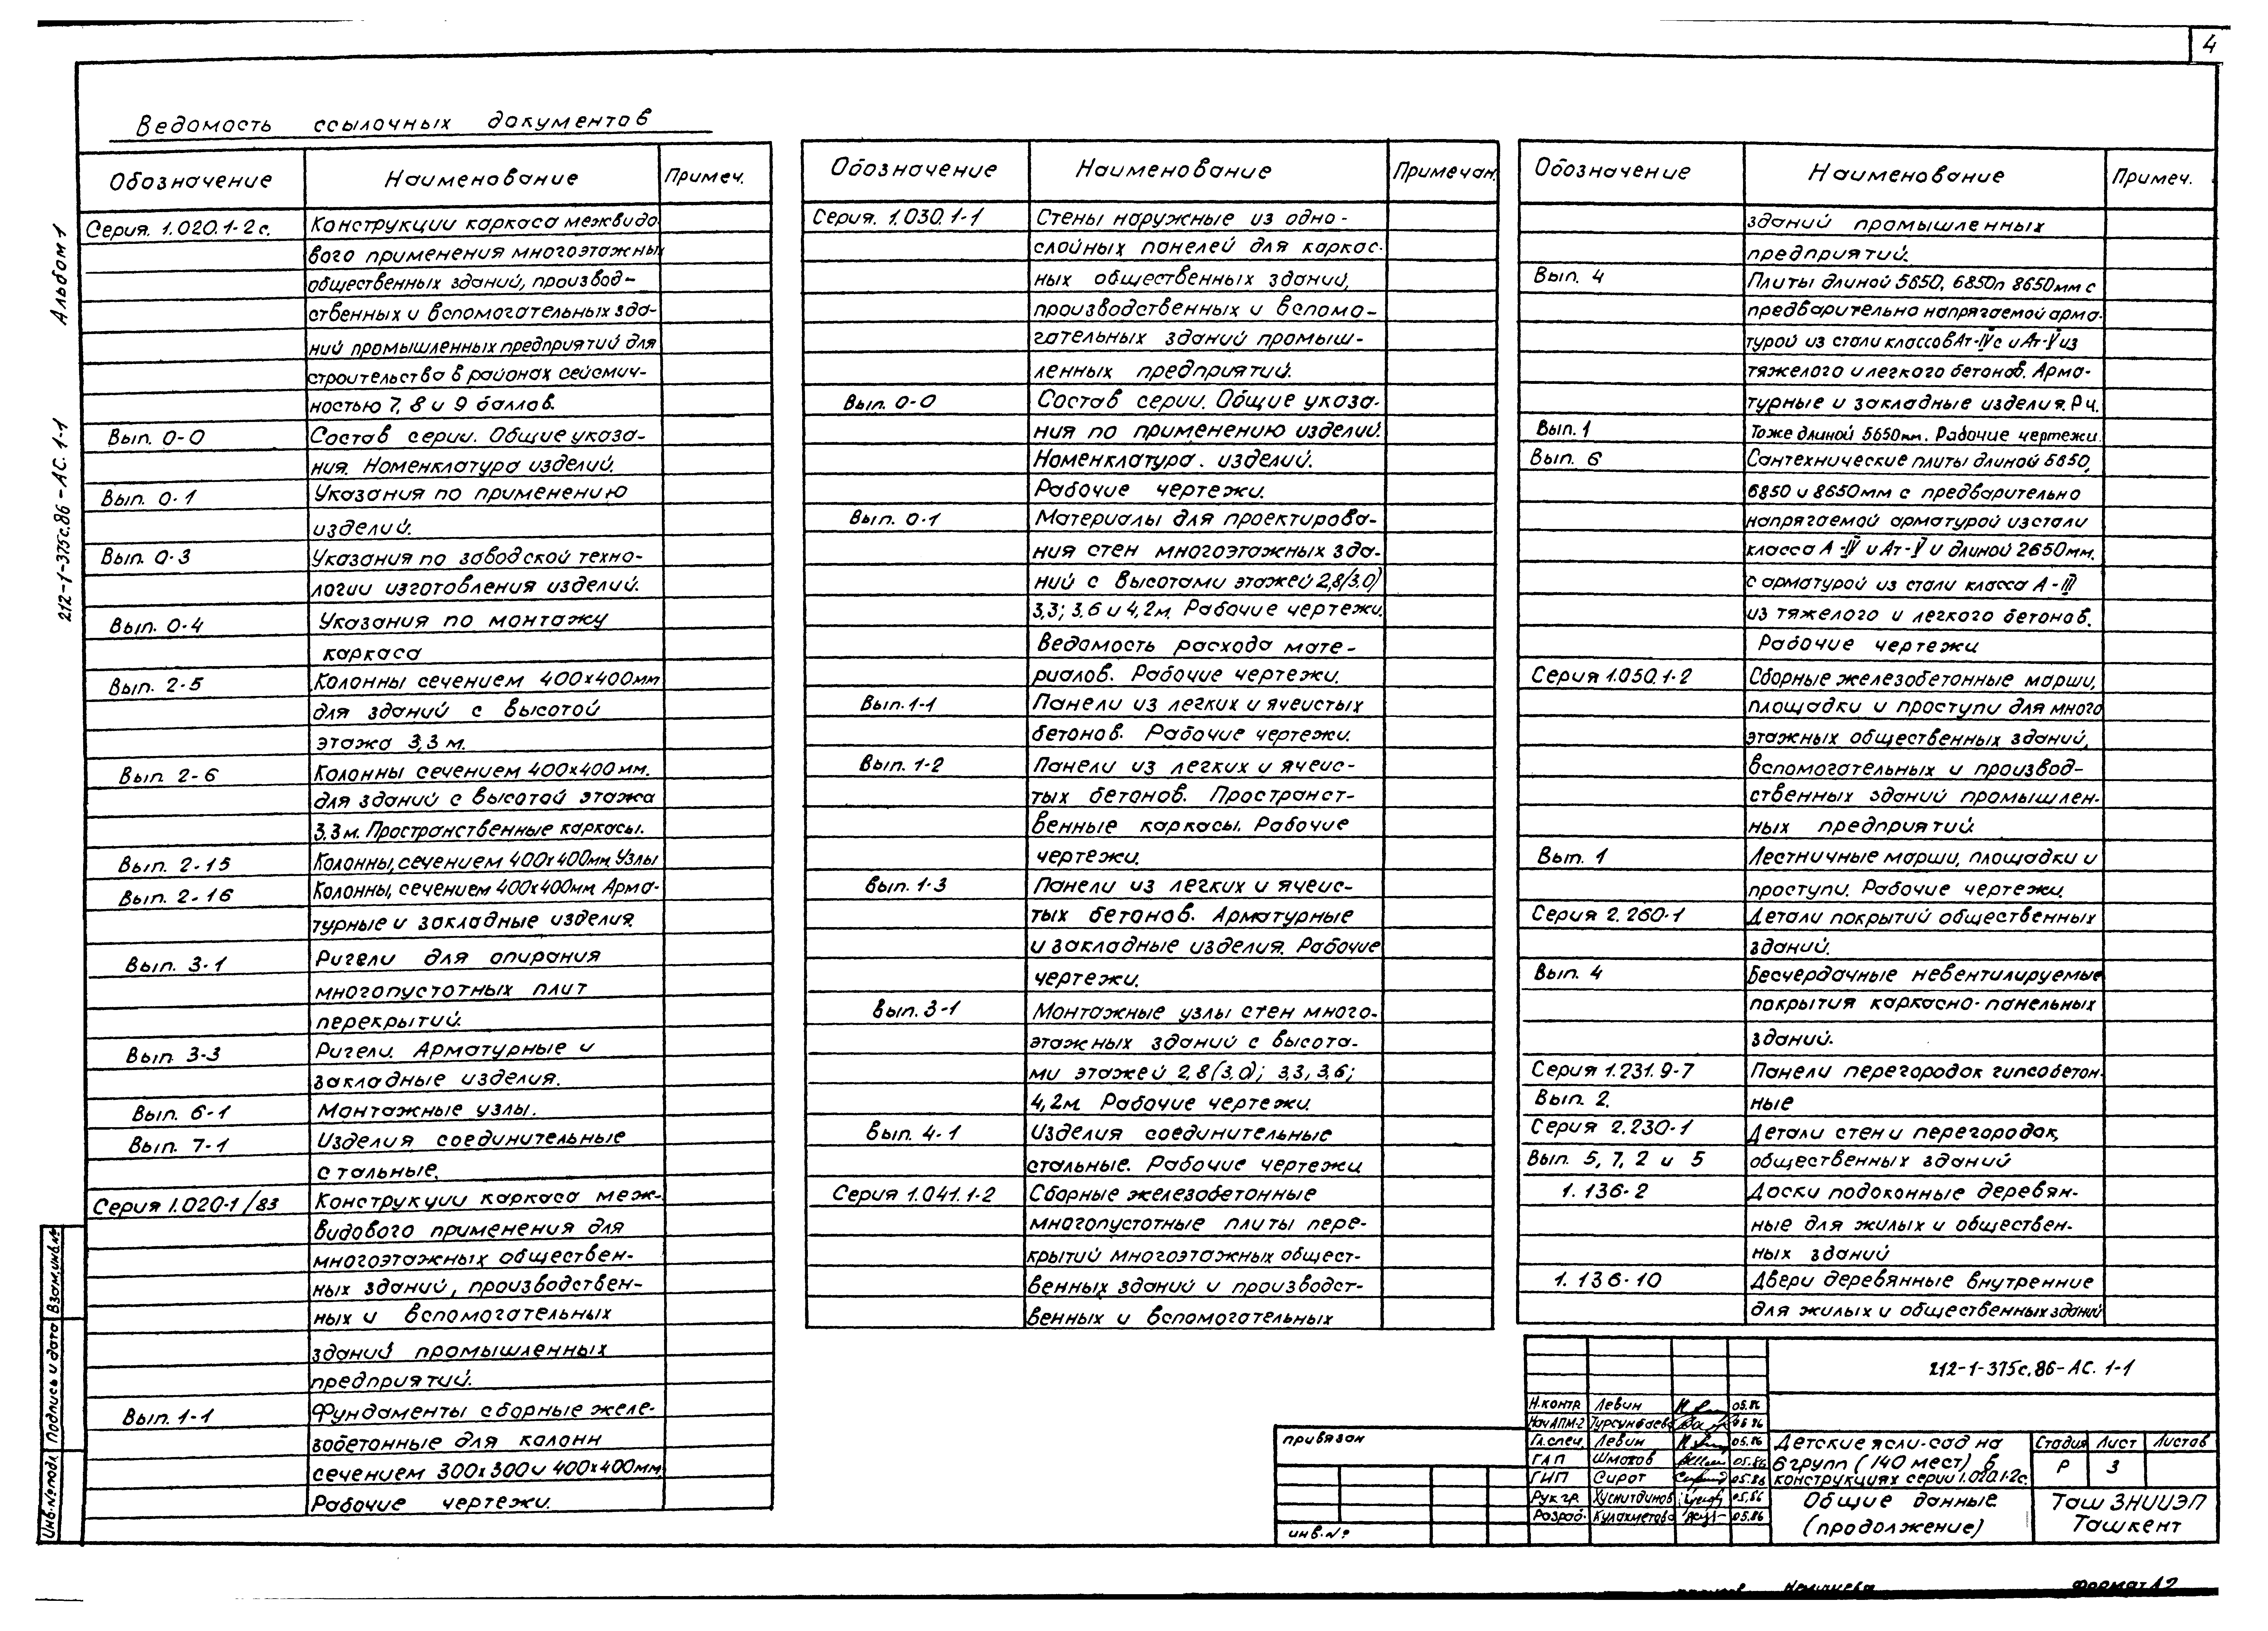 4
Ведомость ссылочных документов
Обозначение Наименование Примеч.
Серия. 1.020.1-2с. Конструкции каркаса межвидо
вого применения многоэтажных
общественных зданий, производ-
ственных и вспомогательных зда-
ний промышленных предприятий для
строительства в районах сейсмич-
ностью 7, 8 и 9 баллов.
Вып. 0-0 Состав серии. Общие указа-
ния. Номенклатура изделий.
Вып. 0-1 Указания по применению
изделий.
Вып. 0-3 Указания по заводской техно-
логии изготовления изделий.
Вып. 0-4 Указания по монтажу
каркаса
Вып. 2-5 Колонны сечением 400х400мм
для зданий с высотой
этажа 3,3 м.
Вып. 2-6 Колонны сечением 400х400мм.
для зданий с высотой этажа
3,3м. Пространственные каркасы.
Вып. 2-15 Колонны, сечением 400х400мм. Узлы
Вып. 2-16 Колонны, сечением 400х400мм. Арма-
турные и закладные изделия.
Вып. 3-1 Ригели для опирания
многопустотных плит
перекрытий.
Вып. 3-3 Ригели. Арматурные и
закладные изделия.
Вып. 6-1 Монтажные узлы.
Вып. 7-1 Изделия соединительные
стальные.
Серия 1.020-1/83 Конструкции каркаса меж-
видового применения для
многоэтажных обществен-
ных зданий, производствен-
ных и вспомогательных
зданий промышленных
предприятий.
Вып. 1-1 Фундаменты сборные желе-
зобетонные для колонн
сечением 300х300 и 400х400мм
Рабочие чертежи.
Обозначение Наименование Примечан.
Серия. 1.030.1-1 Стены наружные из одно-
слойных панелей для каркас-
ных общественных зданий,
производственных и вспомо-
гательных зданий промыш-
ленных предприятий.
Вып. 0-0 Состав серии. Общие указа-
ния по применению изделий.
Номенклатура. изделий.
Рабочие чертежи.
Вып. 0-1 Материалы для проектирова-
ния стен многоэтажных зда-
ний с высотами этажей 2,8(3.0)
3,3; 3.6 и 4,2м. Рабочие чертежи.
Ведомость расхода мате-
риалов. Рабочие чертежи.
Вып. 1-1 Панели из легких и ячеистых
бетонов. Рабочие чертежи.
Вып. 1-2 Панели из легких и ячеис-
тых бетонов. Пространст-
венные каркасы. Рабочие
чертежи.
Вып. 1-3 Панели из легких и ячеис-
тых бетонов. Арматурные
и закладные изделия. Рабочие
чертежи.
Вып. 3-1 Монтажные узлы стен много-
этажных зданий с высота-
ми этажей 2,8(3,0); 3,3, 3,6;
4,2м. Рабочие чертежи.
Вып. 4-1 Изделия соединительные
стальные. Рабочие чертежи
Серия 1.041.1-2 Сборные железобетонные
многопустотные плиты пере-
крытий многоэтажных общест-
венных зданий и производст-
венных и вспомогательных
Обозначение Наименование Примеч.
зданий промышленных
предприятий.
Вып. 4 Плиты длиной 5650, 6850п 8650мм с
предварительно напрягаемой арма-
турой из стали классов Ат-IVс и Ат-V из
тяжелого и легкого бетонов. Арма-
турные и закладные изделия. Рч.
Вып. 1 Тоже длиной 5650мм. Рабочие чертежи.
Вып. 6 Сантехнические плиты длиной 5650,
6850 и 8650мм с предварительно
напрягаемой арматурой из стали
класса А-IV и Ат-V и длиной 2650мм.
с арматурой из стали класса А-III
из тяжелого и легкого бетонов.
Рабочие чертежи
Серия 1.050.1-2 Сборные железобетонные марши,
площадки и проступи для много
этажных общественных зданий,
вспомогательных и производ-
ственных зданий промышлен-
ных предприятий.
Вып. 1 Лестничные марши, площадки и
проступи. Рабочие чертежи.
Серия 2.260-1 Детали покрытий общественных
зданий.
Вып. 4 Бесчердачные невентилируемые
покрытия каркасно-панельных
зданий.
Серия 1.231.9-7 Панели перегородок гипсобетон-
Вып. 2. ные
Серия 2.230-1 Детали стен и перегородок,
Вып. 5, 7, 2 и 5 общественных зданий
1.136-2 Доски подоконные деревян-
ные для жилых и обществен-
ных зданий
1.136-10 Двери деревянные внутренние
для жилых и общественных зданий
Альбом 1
212-1-375с.86-АС. 1-1
Взам.инв.№
Подпись и дата
Инв.№подл.
привязан
инв.№
212-1-375с.86-АС. 1-1
Н.контр Левин 05.86
Нач АПМ-2 Турсунбаева 05.86
Гл.спец. Левин 05.86
ГАП Шмаков 05.86
ГИП Сирот 05.86
Рук.гр. Хуснитдинов 05.86
Разраб. Кулахметова 05.86
Детские ясли-сад на
6 групп (140 мест) в
конструкциях серии 1.020.1-2с.
Стадия Лист Листов
Р 3
Общие данные
(продолжение)
Таш ЗНИИЭП
Ташкент
Формат А2